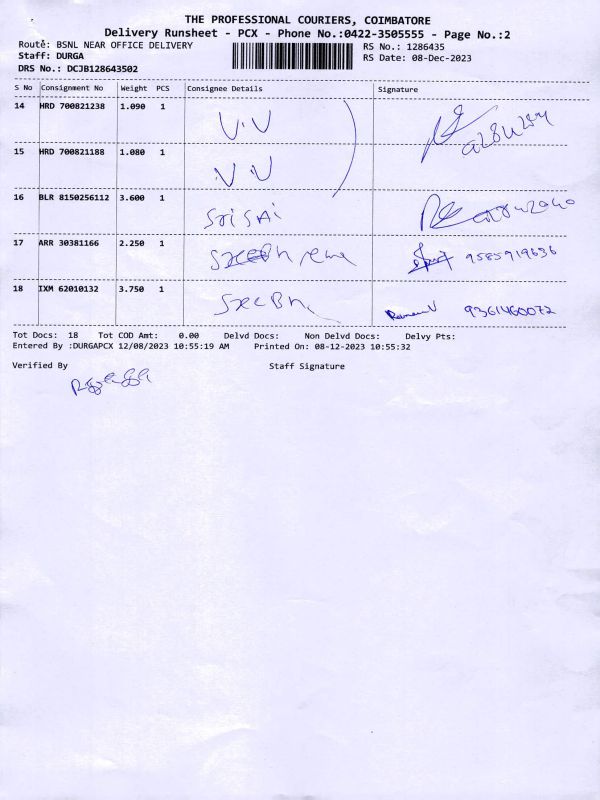 THE PROFESSIONAL COURIERS, COIMBATORE
Delivery Runsheet - PCX - Phone No.:0422-3505555 - Page No.:2
Route: BSNL NEAR OFFICE DELIVERY RS No.: 1286435
Staff: DURGA RS Date: 08-Dec-2023
DRS No.: DCJB128643502
S No Consignment No Weight PCS Consignee Details Signature
14 HRD 700821238 1.090 1 V.V
15 HRD 700821188 1.080 1 V.V
16 BLR 8150256112 3.600 1 Sri SAi
17 ARR 30381166 2.250 1 9585919636
18 IXM 62010132 3.750 1 9361460072
Tot Docs: 18 Tot COD Amt: 0.00 Delvd Docs: Non Delvd Docs: Delvy Pts:
Entered By :DURGAPCX 12/08/2023 10:55:19 AM Printed On: 08-12-2023 10:55:32
Verified By Staff Signature